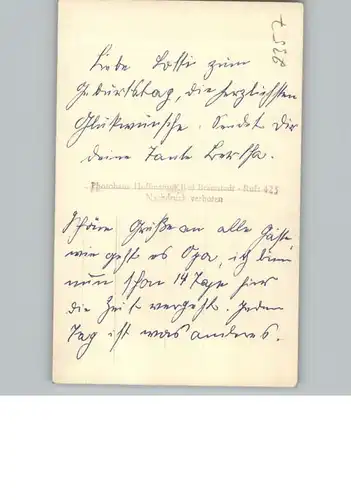 7552
Liebe Lotti zum
Geburtstag, die herzlichsten
Glükwünsche. Sendet Dir
deine Tante Bertha.
Photohaus Hoffmann, Bad Bramstedt - Ruf: 425
Nachdruck verboten
Schöne Grüße an alle Gäste
wie geht es Opa, ich bin
nun schon 14 Tage hier
die Zeit vergeht. Jeden
Tag ist was anderes.